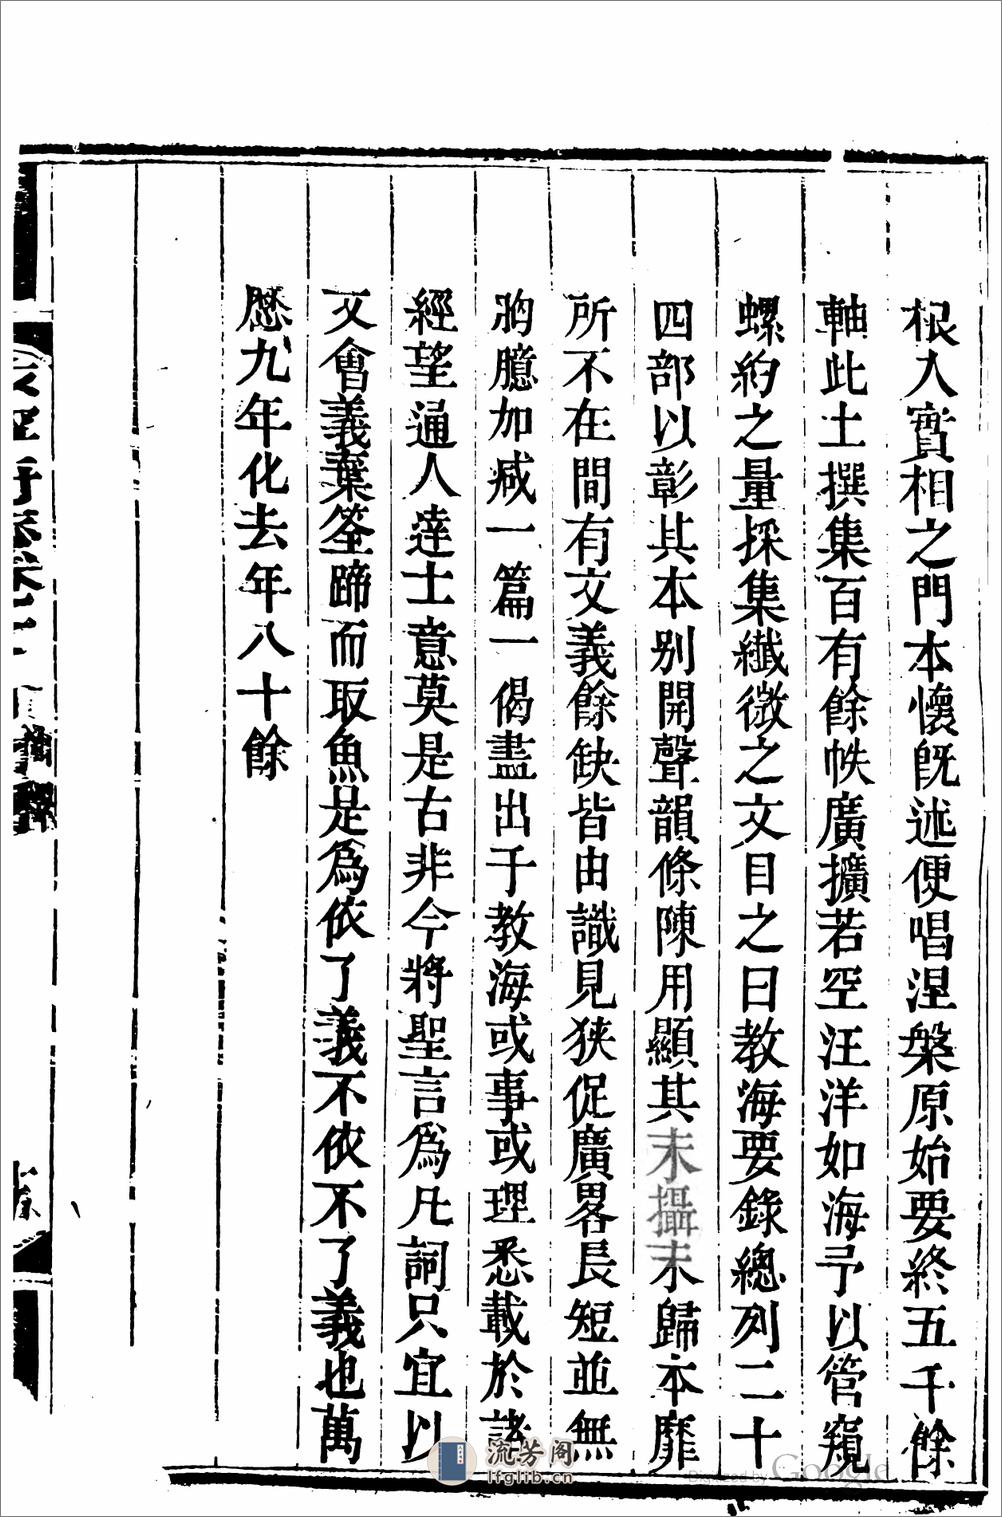 根入實相之門本懷旣述便唱涅槃原始要終五千餘
軸此土撰集百有餘帙廣擴若空汪洋如海予以管窺
螺約之量採集纖微之文目之曰教海要錄總列二十
四部以彰其本别開聲韻條陳用顯其末攝末歸本靡
所不在間有文義餘缺皆由識見狹促廣畧長短並無
胸臆加减一篇一偈盡出于教海或事或理悉載於諸
經望通人達士意莫是古非今將聖言爲凡詞只宜以
文會義棄筌蹄而取魚是爲依了義不依不了義也萬
歷九年化去年八十餘
流芳阁
lfglib.cn
Digitized by Google